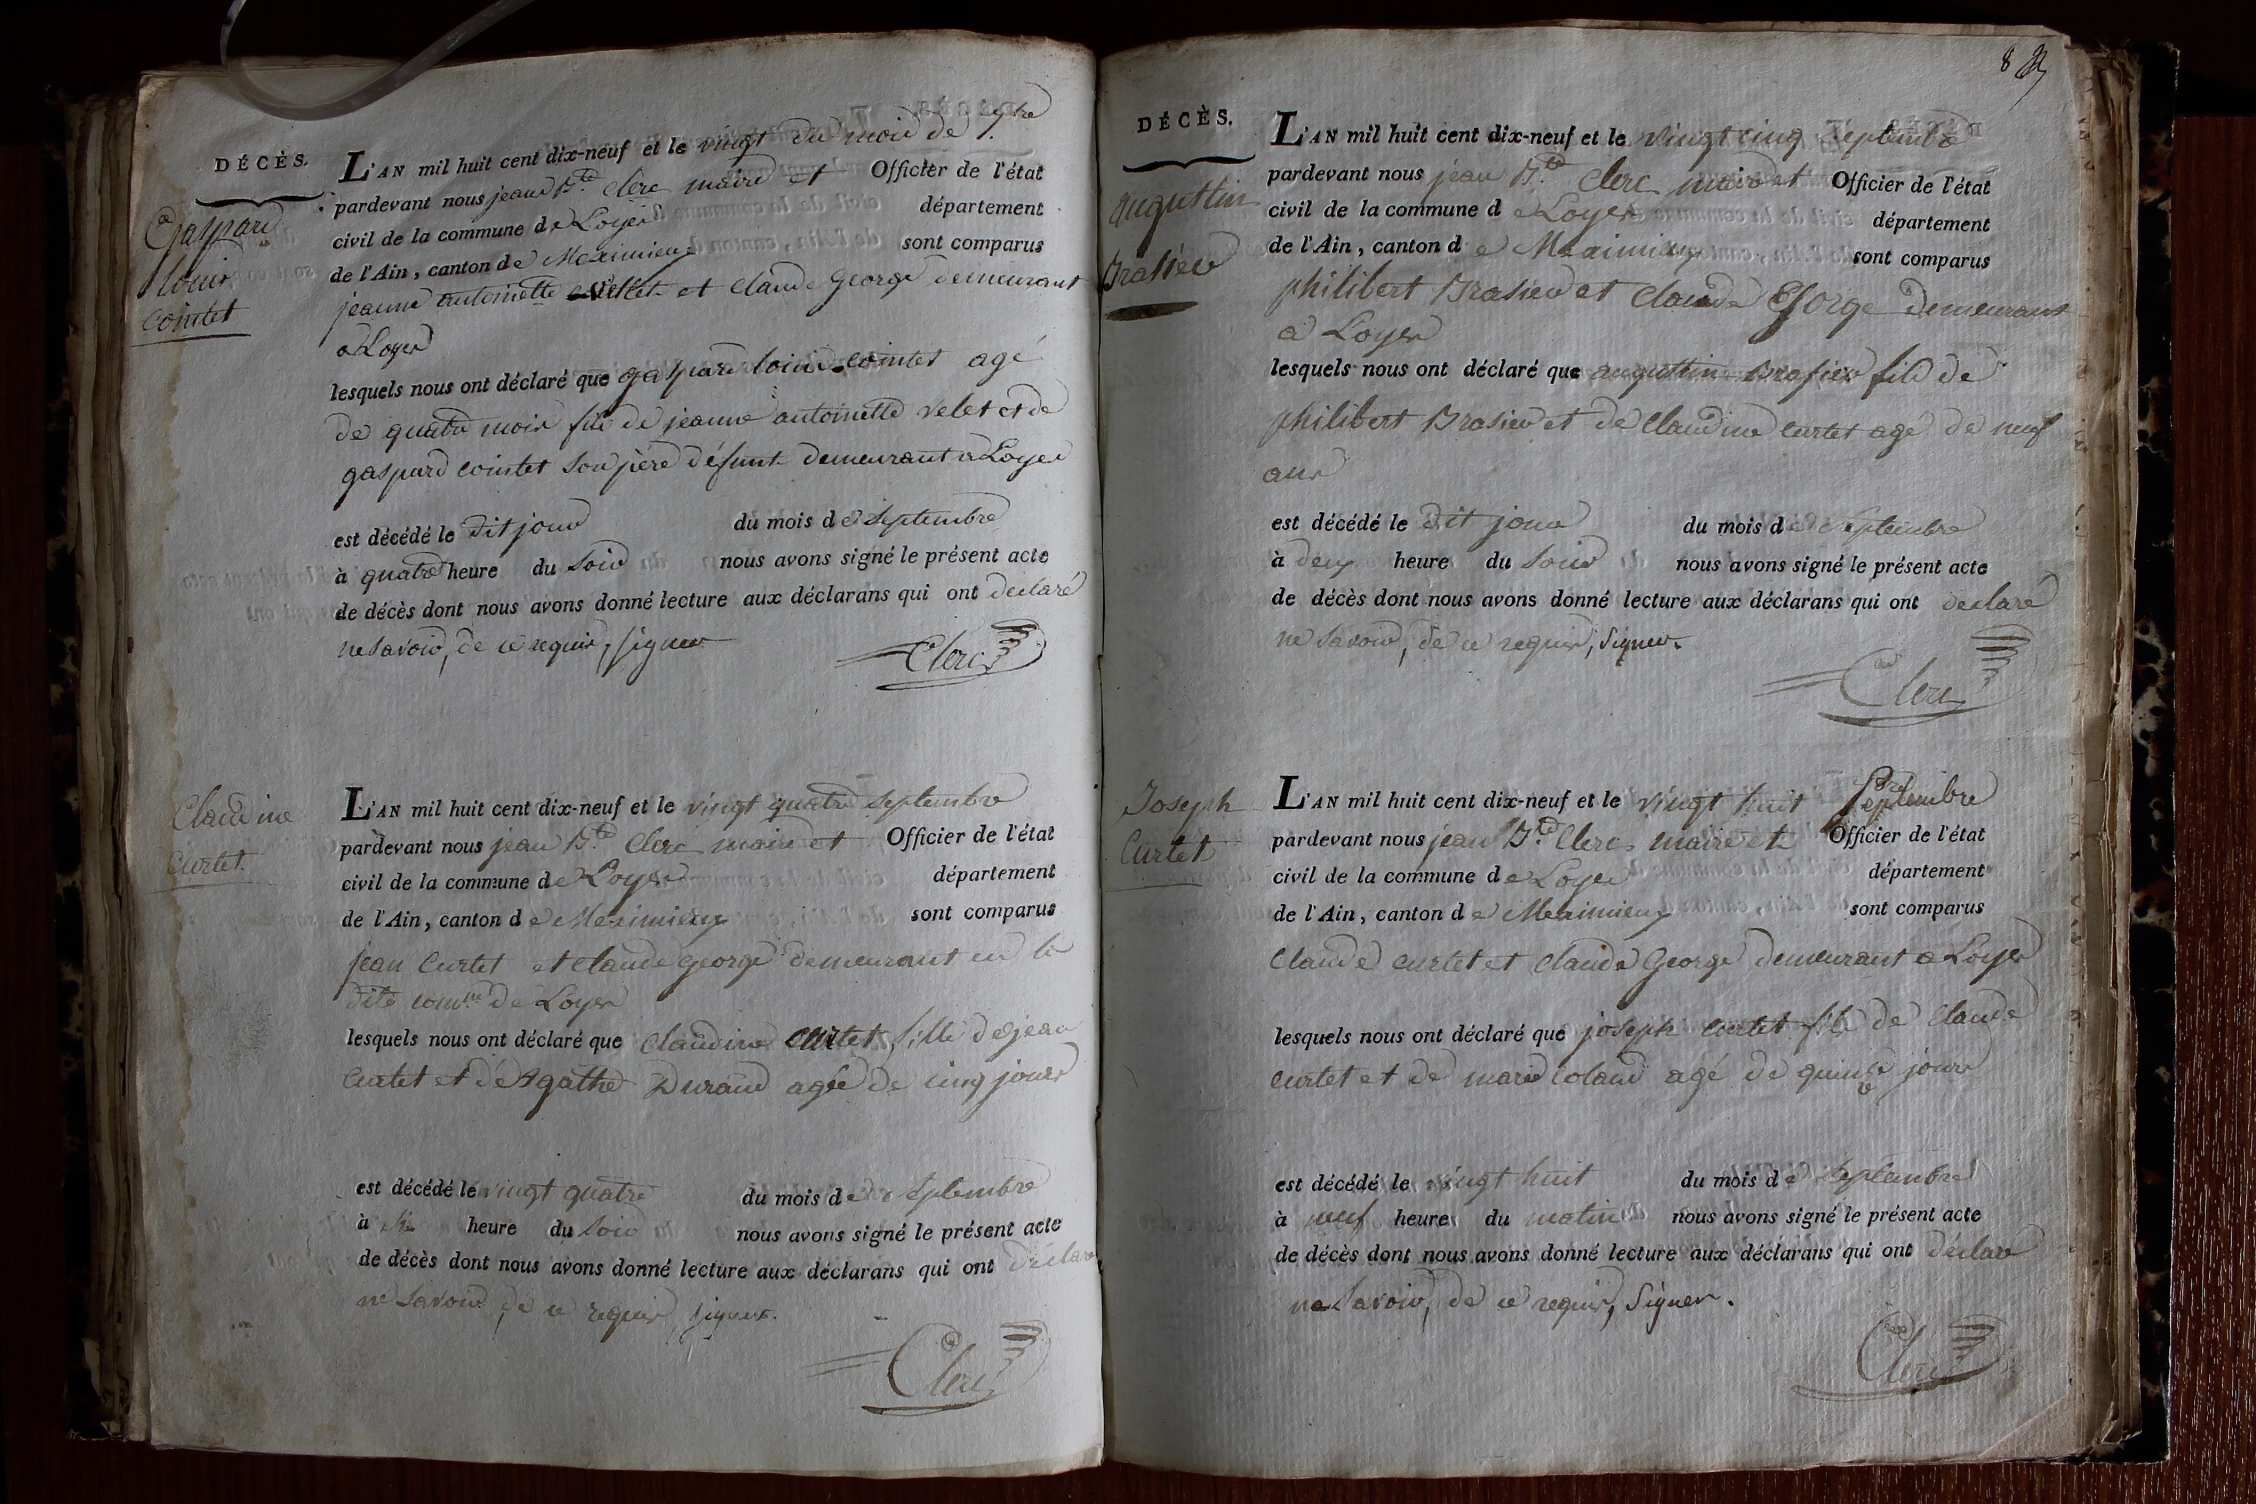 DÉCÈS.
Gaspard
louis
Cointet
L'AN mil huit cent dix-neuf et le vingt du mois de 7bre
pardevant nous jean Bte Clerc maire et Officier de l'état
civil de la commune de Loyes département
de l'Ain, canton de Meximieux sont comparus
jeanne antoinette vellet et Claude George demeurant
a Loyes
lesquels nous ont déclaré que gaspard louis cointet agé
de quatre mois fils de jeanne antoinette velet et de
gaspard cointet son père défunt demeurant a Loyes
est décédé le dit jour du mois de Septembre
à quatre heure du soir nous avons signé le présent acte
de décès dont nous avons donné lecture aux déclarans qui ont déclaré
ne savoir, de ce requis, signer
Clerc
Claudine
Curtet.
L'AN mil huit cent dix-neuf et le vingt quatre Septembre
pardevant nous jean Bte Clerc maire et Officier de l'état
civil de la commune de Loyes département
de l'Ain, canton de Meximieux sont comparus
jean Curtet et Claude George demeurant en la
dite comne de Loyes
lesquels nous ont déclaré que Claudine Curtet, fille de jean
Curtet et de Agathe Durand agée de cinq jours
est décédé le vingt quatre du mois de Septembre
à heure du soir nous avons signé le présent acte
de décès dont nous avons donné lecture aux déclarans qui ont déclaré
ne savoir, de ce requis, signer.
Clerc
8
DÉCÈS.
augustin
Brasier
L'AN mil huit cent dix-neuf et le vingt cinq Septembre
pardevant nous jean Bte Clerc maire et Officier de l'état
civil de la commune de Loyes département
de l'Ain, canton de Meximieux sont comparus
philibert Brasier et Claude George demeurant
a Loyes
lesquels nous ont déclaré que augustin Brasier fils de
philibert Brasier et de Claudine Curtet agé de neuf
ans
est décédé le dit jour du mois de Septembre
à deux heure du soir nous avons signé le présent acte
de décès dont nous avons donné lecture aux déclarans qui ont déclaré
ne savoir, de ce requis, signer.
Clerc
Joseph
Curtet
L'AN mil huit cent dix-neuf et le vingt huit Septembre
pardevant nous jean Bte Clerc maire et Officier de l'état
civil de la commune de Loyes département
de l'Ain, canton de Meximieux sont comparus
Claude Curtet et Claude George demeurant a Loyes
lesquels nous ont déclaré que joseph Curtet fils de Claude
Curtet et de marie Coland agé de quinse jours
est décédé le vingt huit du mois de Septembre
à neuf heure du matin nous avons signé le présent acte
de décès dont nous avons donné lecture aux déclarans qui ont déclaré
ne savoir, de ce requis, Signer.
Clerc